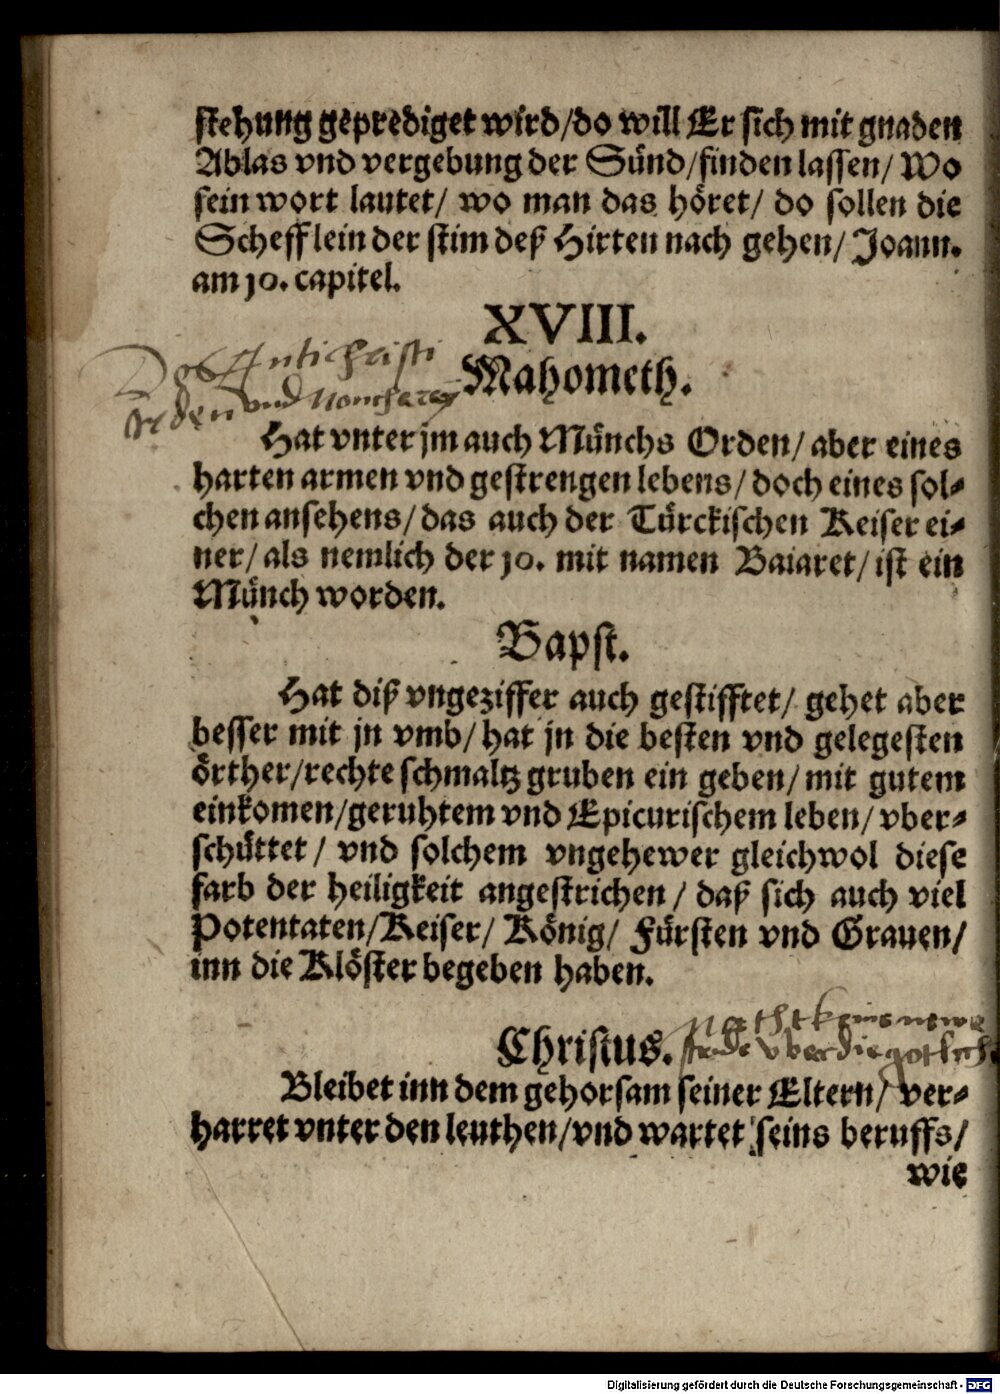 stehung geprediget wird/do will Er sich mit gnaden
Ablas vnd vergebung der Sünd/finden lassen/ Wo
sein wort lautet/ wo man das höret/ do sollen die
Schefflein der stim deß Hirten nach gehen/ Joann.
am 10. capitel.
XVIII.
Des Antichristi
orden vnd
Mahometh.
Hat vnter jm auch Münchs Orden/ aber eines
harten armen vnd gestrengen lebens/ doch eines sol-
chen ansehens/ das auch der Türckischen Keiser ei-
ner/ als nemlich der 10. mit namen Baiaret/ ist ein
Münch worden.
Bapst.
Hat diß vngeziffer auch gestifftet/ gehet aber
besser mit jn vmb/ hat jn die besten vnd gelegesten
örther/rechte schmaltz gruben ein geben/ mit gutem
einkomen/geruhtem vnd Epicurischem leben/ vber-
schüttet/ vnd solchem vngehewer gleichwol diese
farb der heiligkeit angestrichen/ daß sich auch viel
Potentaten/Keiser/ König/ Fürsten vnd Grauen/
inn die Klöster begeben haben.
macht keine newe
Christus.
vber die gotliche
Bleibet inn dem gehorsam seiner Eltern/ ver-
harret vnter den leuthen/vnd wartet seins beruffs/
wie
Digitalisierung gefördert durch die Deutsche Forschungsgemeinschaft - DFG